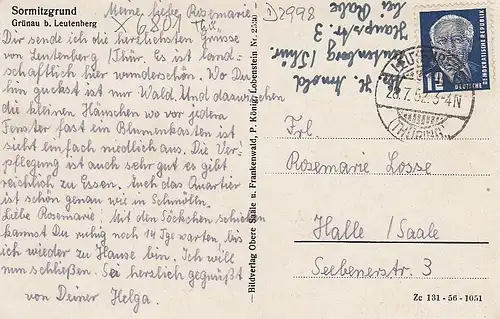 Sormitzgrund
Grünau b. Leutenberg
Meine liebe Rosemarie!
Dir sende ich die herzlichsten Grüsse
von Leutenberg /Thür. Es ist land-
schaftlich hier wunderschön. Wo Du
hin guckst ist nur Wald. Und dazwischen
die kleinen Häuschen wo vor jedem
Fenster fast ein Blumenkasten ist
sieht einfach niedlich aus. Die Ver-
pflegung ist auch sehr gut es gibt
reichlich zu Essen. Auch das Quartier
ist schön genau wie in Schmölln.
Liebe Rosemarie! Mit den Söckchen schicken
kannst Du ruhig noch 14 Tge warten, bis
ich wieder zu Hause bin. Ich will
nun schließen. Sei herzlich gegrüßt
von Deiner Helga.
Bildverlag Obere Saale u. Frankenwald, P. König, Lobenstein Nr. 2529
D2998
H. Arnold
Leutenberg /Thür.
Hauptstr. 3
bei Rabe
DEUTSCHE
DEMOKRATISCHE REPUBLIK
12
28.7.52.3-4N
(THÜRING)
Frl.
Rosemarie Losse
Halle /Saale
Seebenerstr. 3
Zc 131 - 56 - 1051